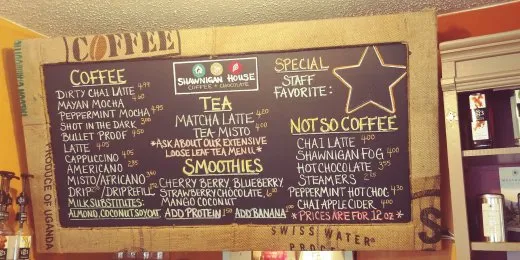 COFFEE
COFFEE
DIRTY CHAI LATTE 4.90
MAYAN MOCHA 4.60
PEPPERMINT MOCHA 4.95
SHOT IN THE DARK 3.00
BULLET PROOF 4.50
LATTE 4.05
CAPPUCCINO 4.05
AMERICANO
MISTO/AFRICANO
DRIP / DRIP REFILL
MILK SUBSTITUTES:
ALMOND, COCONUT, SOY, OAT
SHAWNIGAN HOUSE
COFFEE + CHOCOLATE
TEA
MATCHA LATTE 4.20
TEA MISTO 4.00
*ASK ABOUT OUR EXTENSIVE
LOOSE LEAF TEA MENU*
SMOOTHIES
CHERRY BERRY BLUEBERRY
STRAWBERRY CHOCOLATE,
MANGO COCONUT
ADD PROTEIN 1.50 ADD BANANA
SPECIAL
STAFF
FAVORITE:
NOT SO COFFEE
CHAI LATTE 4.00
SHAWNIGAN FOG 4.00
HOT CHOCOLATE 3.95
STEAMERS
PEPPERMINT HOT CHOC. 4.30
CHAI APPLE CIDER 4.00
*PRICES ARE FOR 12 oz*
PRODUCE OF UGANDA
SWISS WATER
S